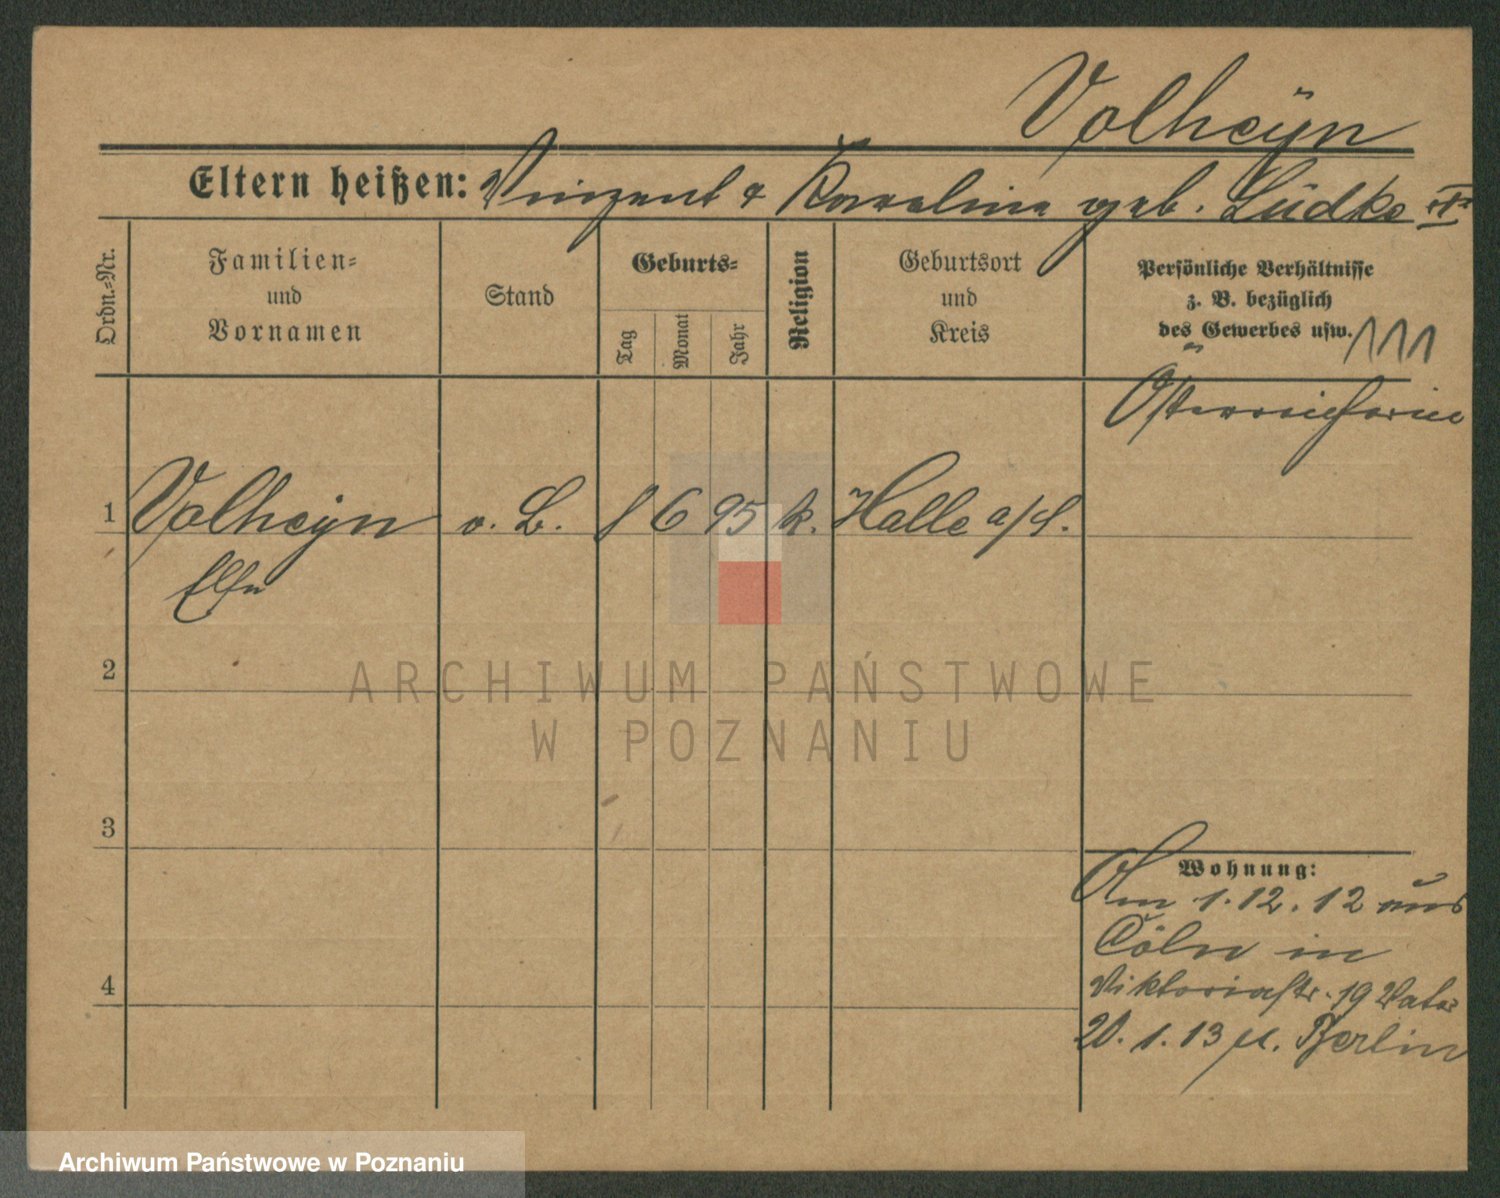 Volheÿn
Eltern heißen: Vinzent & Karolina geb. Lüdke
Ordn.-Nr.
Familien-
und
Vornamen
Stand
Geburts-
Tag
Monat
Jahr
Religion
Geburtsort
und
Kreis
Persönliche Verhältnisse
z. B. bezüglich
des Gewerbes usw.
Österreicherin
1 Volheijn o. B. 8 6 95 k. Halle a/S.
Else
2
3
4
Wohnung:
Am 1.12.12 aus
Cöln in
Viktoriastr. 19 Vater
20.1.13 n. Berlin
ARCHIWUM PAŃSTWOWE
W POZNANIU
Archiwum Państwowe w Poznaniu